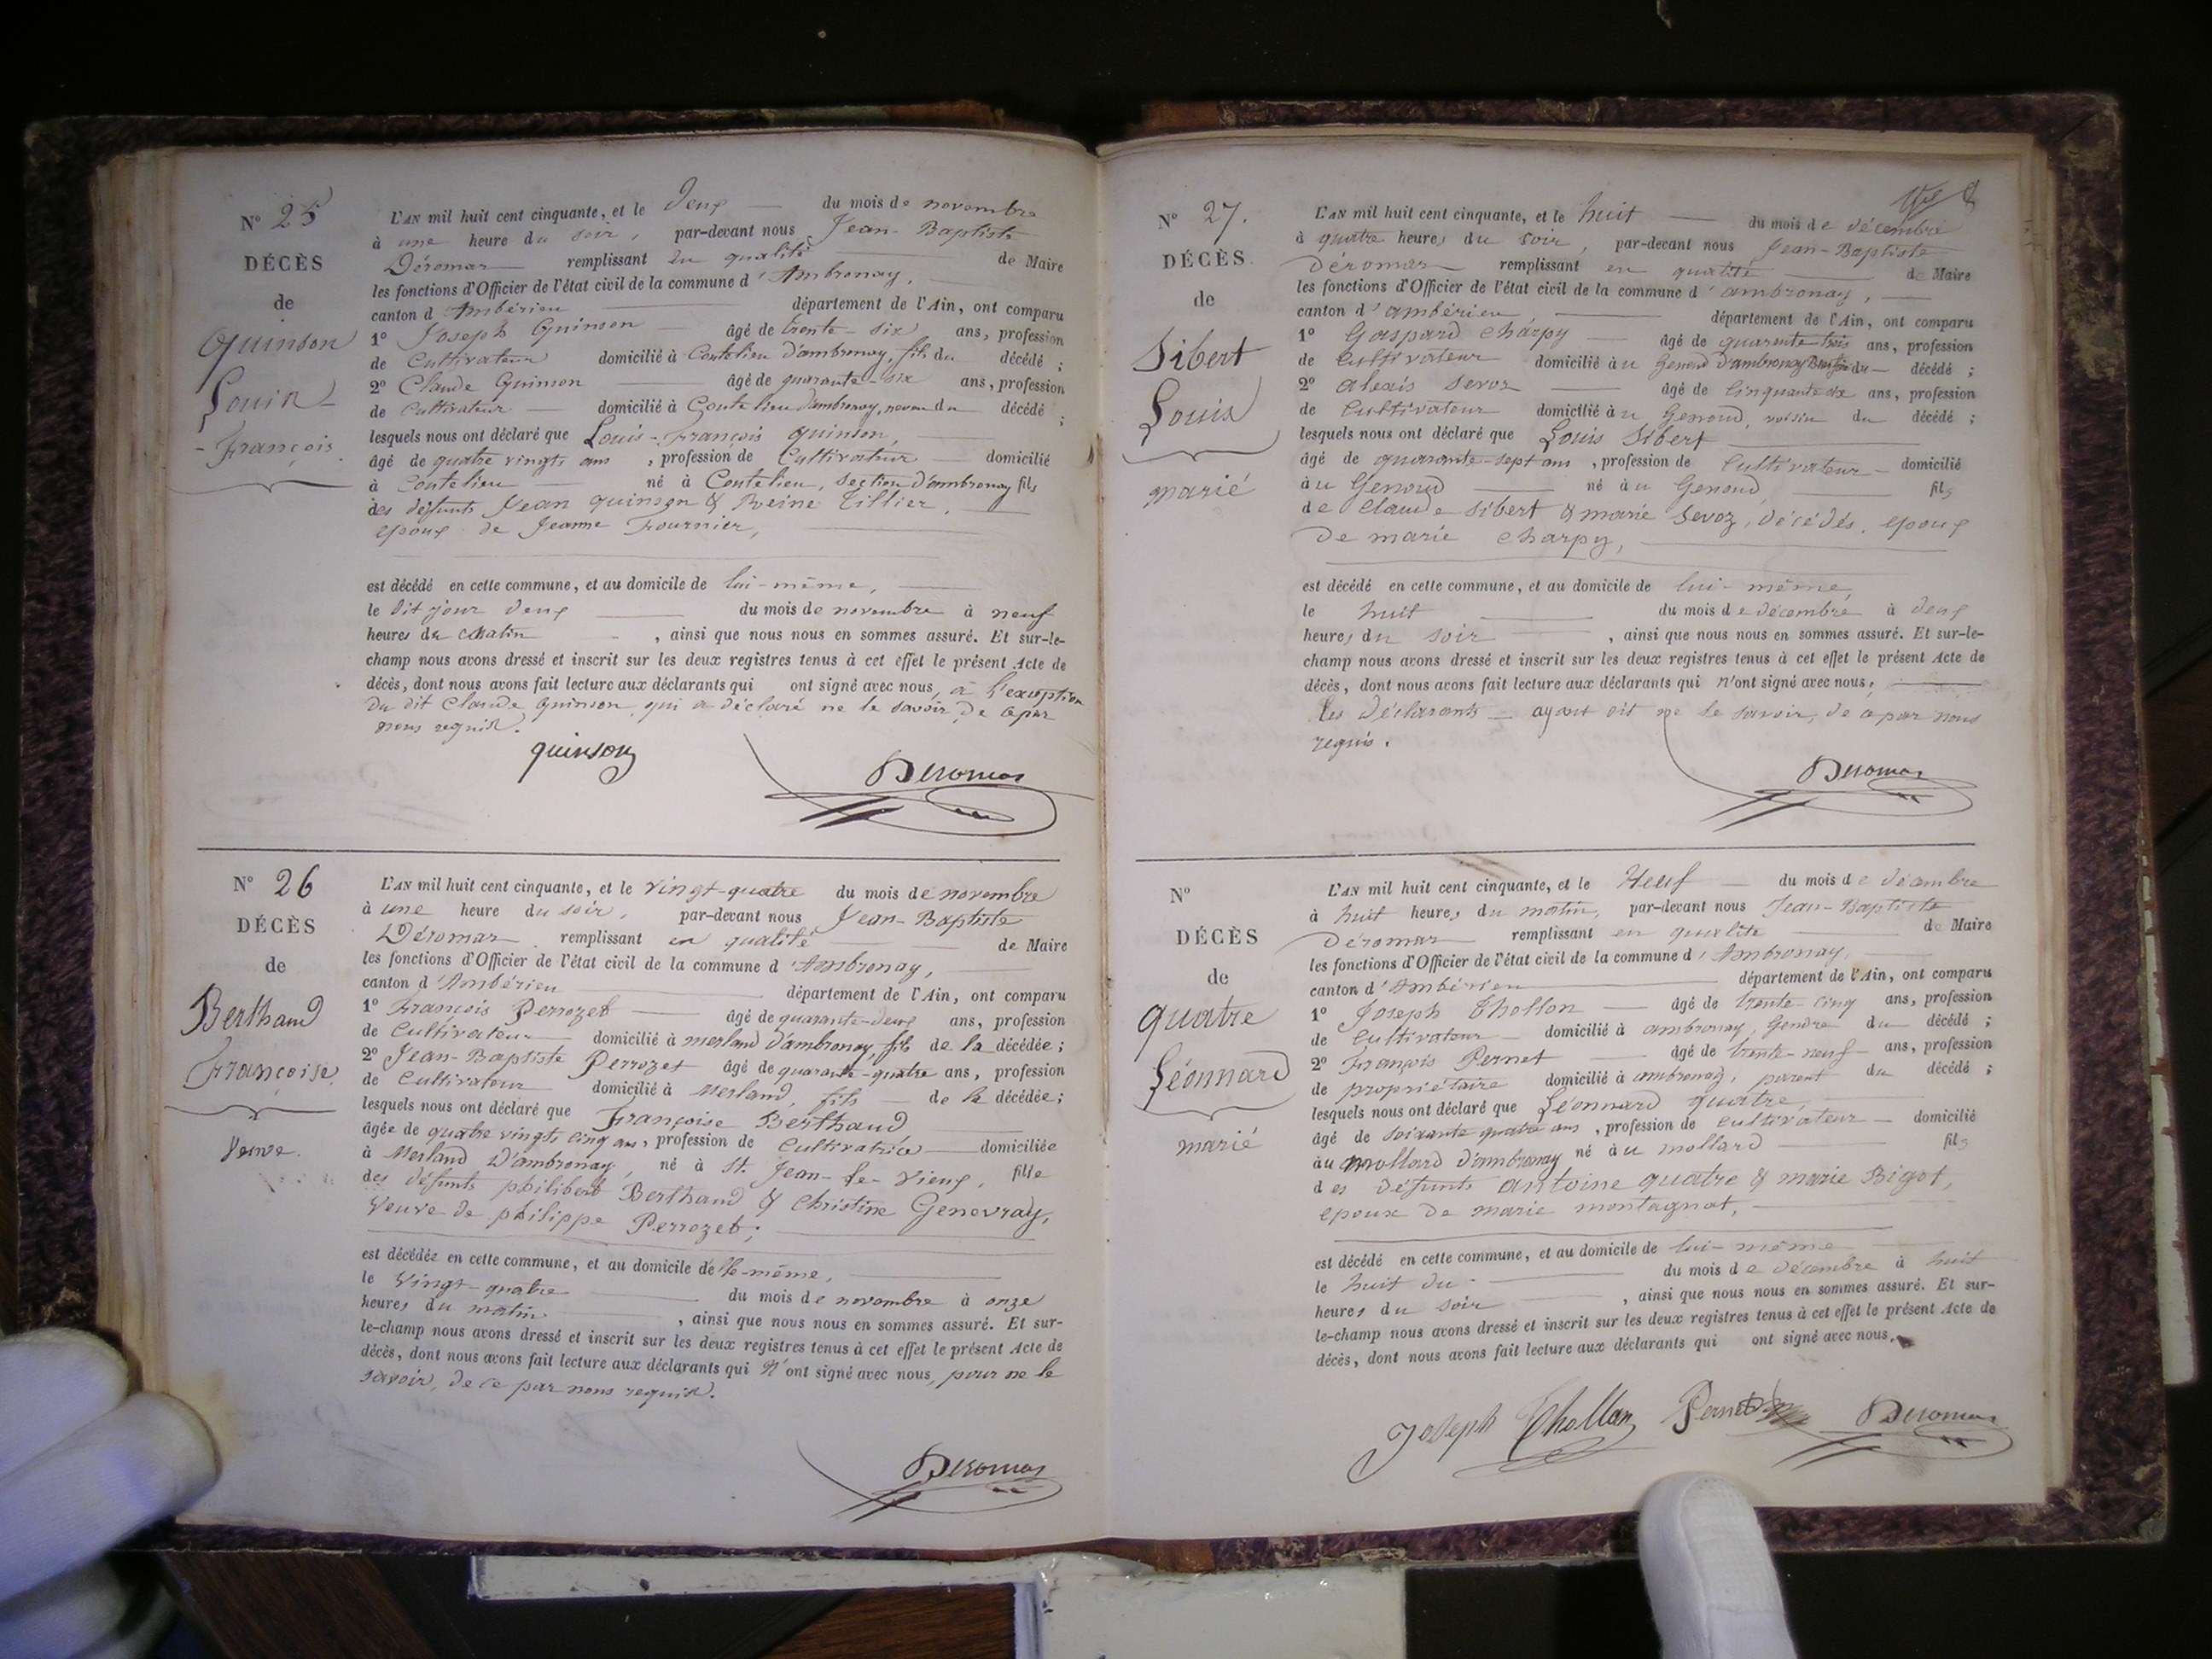 N° 25
DÉCÈS
de
Quinson
Louis
- François.
L'AN mil huit cent cinquante, et le Deux du mois de novembre
à une heure du soir, par-devant nous Jean-Baptiste
Déromas remplissant en qualité de Maire
les fonctions d'Officier de l'état civil de la commune d'Ambronay,
canton d'Ambérieu département de l'Ain, ont comparu
1° Joseph Quinson âgé de trente-six ans, profession
de Cultivateur domicilié à Coutelieu d'ambronay, fils du décédé ;
2° Claude Quinson âgé de quarante-six ans, profession
de Cultivateur domicilié à Coutelieu d'ambronay, neveu du décédé ;
lesquels nous ont déclaré que Louis-François Quinson,
âgé de quatre vingts ans, profession de Cultivateur domicilié
à Coutelieu né à Coutelieu, section d'ambronay fils
des défunts Jean Quinson & Reine Tillier,
epoux de Jeanne Fournier,
est décédé en cette commune, et au domicile de lui-même,
le dit jour deux du mois de novembre à neuf
heures du Matin, ainsi que nous nous en sommes assuré. Et sur-le-
champ nous avons dressé et inscrit sur les deux registres tenus à cet effet le présent Acte de
décès, dont nous avons fait lecture aux déclarants qui ont signé avec nous, à l'exception
du dit Claude Quinson qui a déclaré ne le savoir de ce par
nous requis.
quinson Deromas
N° 26
DÉCÈS
de
Berthaud
Françoise
Veuve.
L'AN mil huit cent cinquante, et le vingt-quatre du mois de novembre
à une heure du soir, par-devant nous Jean-Baptiste
Déromas remplissant en qualité de Maire
les fonctions d'Officier de l'état civil de la commune d'Ambronay,
canton d'Ambérieu département de l'Ain, ont comparu
1° François Perrozet âgé de quarante-deux ans, profession
de Cultivateur domicilié à merland d'ambronay, fils de la décédée ;
2° Jean-Baptiste Perrozet âgé de quarante-quatre ans, profession
de Cultivateur domicilié à Merland, fils de la décédée ;
lesquels nous ont déclaré que Françoise Berthaud
âgée de quatre vingts cinq ans, profession de Cultivatrice domiciliée
à Merland d'ambronay, né à St. Jean-le-Vieux, fille
des défunts philibert Berthaud & Christine Genevray,
veuve de philippe Perrozet ;
est décédée en cette commune, et au domicile d'elle-même,
le Vingt-quatre du mois de novembre à onze
heures du matin, ainsi que nous nous en sommes assuré. Et sur-
le-champ nous avons dressé et inscrit sur les deux registres tenus à cet effet le présent Acte de
décès, dont nous avons fait lecture aux déclarants qui N'ont signé avec nous, pour ne le
savoir, de ce par nous requis.
Deromas
N° 27.
DÉCÈS.
de
Sibert
Louis
marié
L'AN mil huit cent cinquante, et le huit du mois de décembre
à quatre heures du soir, par-devant nous Jean-Baptiste
Déromas remplissant en qualité de Maire
les fonctions d'Officier de l'état civil de la commune d'ambronay,
canton d'ambérieu département de l'Ain, ont comparu
1° Gaspard Charpy âgé de quarante trois ans, profession
de Cultivateur domicilié au Genoud d'ambronay du décédé ;
2° Alexis Sevoz âgé de Cinquante six ans, profession
de Cultivateur domicilié au Genoud, voisin du décédé ;
lesquels nous ont déclaré que Louis Sibert
âgé de quarante-sept ans, profession de Cultivateur domicilié
au Genoud né au Genoud, fils
de Claude Sibert & marie Sevoz, décédés, epoux
de marie Charpy,
est décédé en cette commune, et au domicile de lui-même,
le huit du mois de décembre à deux
heures du soir, ainsi que nous nous en sommes assuré. Et sur-le-
champ nous avons dressé et inscrit sur les deux registres tenus à cet effet le présent Acte de
décès, dont nous avons fait lecture aux déclarants qui n'ont signé avec nous,
les déclarants ayant dit ne le savoir, de ce par nous
requis.
Deromas
N°
DÉCÈS
de
quatre
Léonnard
marié
L'AN mil huit cent cinquante, et le Neuf du mois de décembre
à huit heures du matin, par-devant nous Jean-Baptiste
Déromas remplissant en qualité de Maire
les fonctions d'Officier de l'état civil de la commune d'Ambronay,
canton d'Ambérieu département de l'Ain, ont comparu
1° Joseph Thollon âgé de trente-cinq ans, profession
de Cultivateur domicilié à ambronay, Gendre du décédé ;
2° François Pernet âgé de trente-neuf ans, profession
de propriétaire domicilié à ambronay, parent du décédé ;
lesquels nous ont déclaré que Léonnard quatre,
âgé de soixante quatre ans, profession de Cultivateur domicilié
au mollard d'ambronay né au mollard fils
des défunts antoine quatre & marie Bigot,
epoux de marie montagnat,
est décédé en cette commune, et au domicile de lui-même
le huit du du mois de décembre à huit
heures du soir, ainsi que nous nous en sommes assuré. Et sur-
le-champ nous avons dressé et inscrit sur les deux registres tenus à cet effet le présent Acte de
décès, dont nous avons fait lecture aux déclarants qui ont signé avec nous.
Joseph Thollon Pernet Deromas